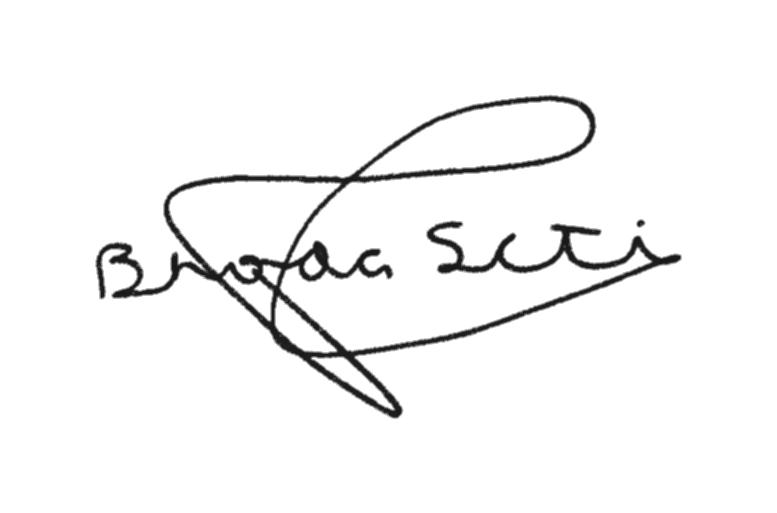 Broda Seti